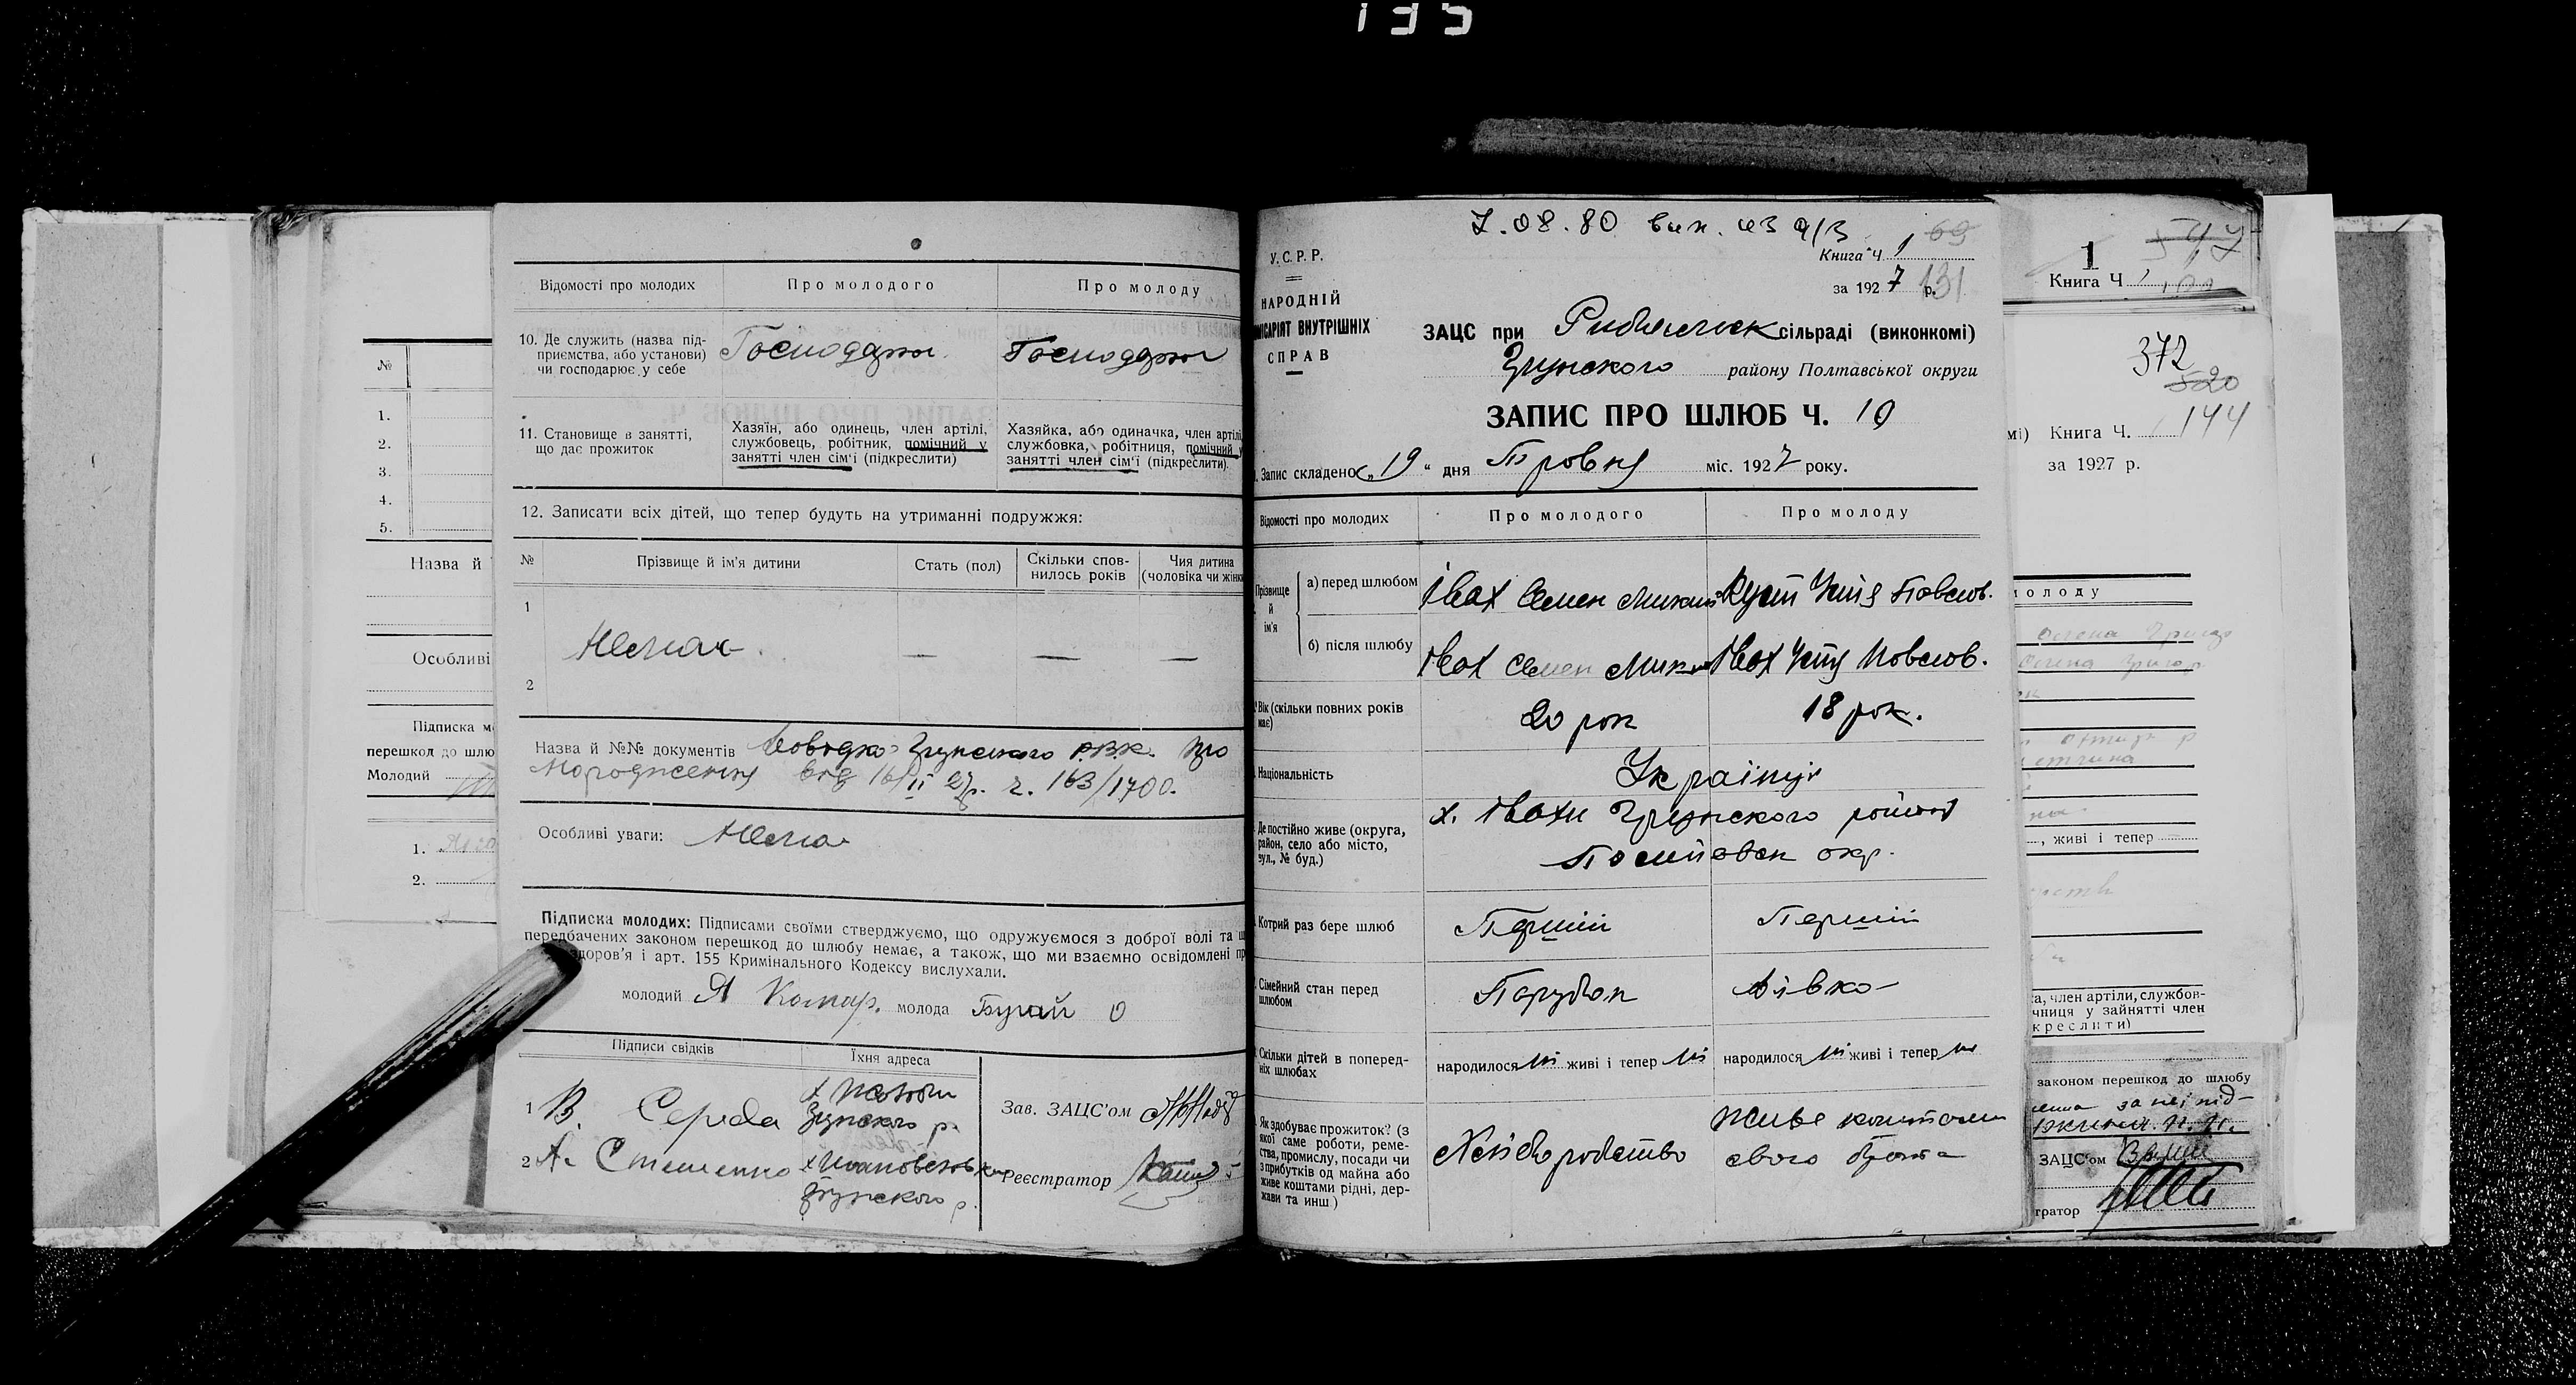 135
№
1.
2.
3.
4.
5.
Назва й
Особливі
Підписка м
перешкод до шлю
Молодий
1.
2.
Відомості про молодих
Про молодого
Про молоду
10. Де служить (назва під-
приємства, або установи)
чи господарює у себе
Господарює
Господарює
11. Становище в занятті,
що дає прожиток
Хазяїн, або одинець, член артілі,
службовець, робітник, помічний у
занятті член сім'ї (підкреслити)
Хазяйка, або одиначка, член артілі,
службовка, робітниця, помічний у
занятті член сім'ї (підкреслити).
12. Записати всіх дітей, що тепер будуть на утриманні подружжя:
№
Прізвище й ім'я дитини
Стать (пол)
Скільки спов-
нилось років
Чия дитина
(чоловіка чи жінки
1
Немає
— — —
2
Назва й №№ документів Грунського Р.В.К. про
народження від 16/II 27р. ч. 163/1700.
Особливі уваги: Нема
Підписка молодих: Підписами своїми стверджуємо, що одружуємося з доброї волі та щ
передбачених законом перешкод до шлюбу немає, а також, що ми взаємно освідомлені пр
здоров'я і арт. 155 Кримінального Кодексу вислухали.
молодий Я Комар. молода Бугай О
Підписи свідків
Їхня адреса
1 В. Середа
Грунского р.
2 А. Стешенко
Грунского р.
Зав. ЗАЦС'ом
Реєстратор
7.08.80 вик. из а/з
У.С.Р.Р.
НАРОДНІЙ
МІСАРІЯТ ВНУТРІШНІХ
СПРАВ
Книга Ч 1 69
за 1927 р. 131
ЗАЦС при сільраді (виконкомі)
Грунского району Полтавської округи
ЗАПИС ПРО ШЛЮБ Ч. 19
Запис складено „19“ дня міс. 1927 року.
Відомості про молодих
Про молодого
Про молоду
Прізвище
й
ім'я
а) перед шлюбом
Івах Семен Микит
Кущ Устя Павлов.
б) після шлюбу
Івах Семен Микит
Івах Устя Павлов.
Вік (скільки повних років
має)
20 рок
18 рок.
Національність
Українці
Де постійно живе (округа,
район, село або місто,
вул., № буд.)
х. Івахи Грунского района
Полтавськ окр.
Котрий раз бере шлюб
Перший
Перший
Сімейний стан перед
шлюбом
Парубок
Дівка
Скільки дітей в поперед-
ніх шлюбах
народилося ні живі і тепер ні
народилося ні живі і тепер ні
Як здобуває прожиток? (з
якої саме роботи, реме-
ства, промислу, посади чи
з прибутків од майна або
живе коштами рідні, дер-
жави та инш.)
Хліборобство
Живе коштами
свого брата
1
547
Книга Ч
372
520
мі) Книга Ч. 144
за 1927 р.
молоду
, живі і тепер
ка, член артіли, службов-
чниця у зайнятті член
креслити)
законом перешкод до шлюбу
за неї під-
ЗАЦС'ом
тратор